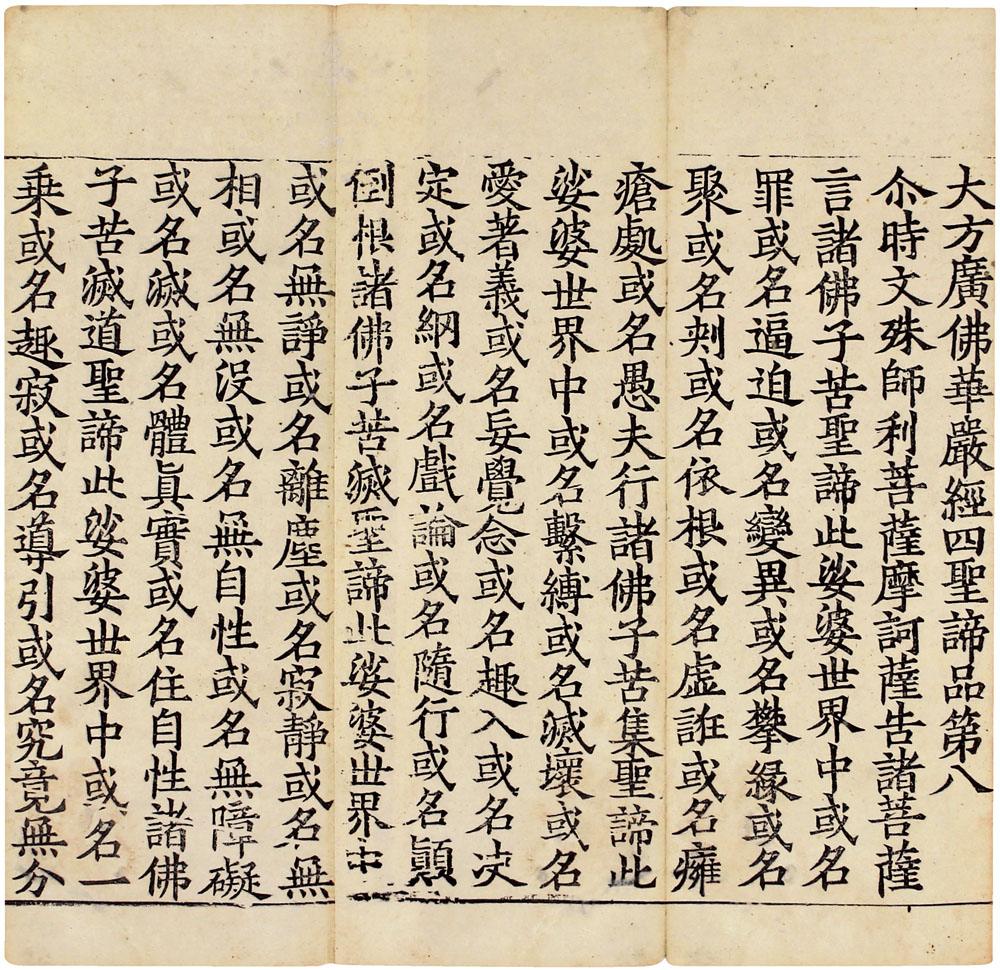 大方廣佛華嚴經四聖諦品第八
尒時文殊師利菩薩摩訶薩告諸菩薩
言諸佛子苦聖諦此娑婆世界中或名
罪或名逼迫或名變異或名攀緣或名
聚或名刾或名依根或名虛誑或名癰
瘡處或名愚夫行諸佛子苦集聖諦此
娑婆世界中或名繫縛或名滅壞或名
愛著義或名妄覺念或名趣入或名决
定或名網或名戲論或名隨行或名顛
倒根諸佛子苦滅聖諦此娑婆世界中
或名無諍或名離塵或名寂靜或名無
相或名無沒或名無自性或名無障礙
或名滅或名體眞實或名住自性諸佛
子苦滅道聖諦此娑婆世界中或名一
乘或名趣寂或名導引或名究竟無分